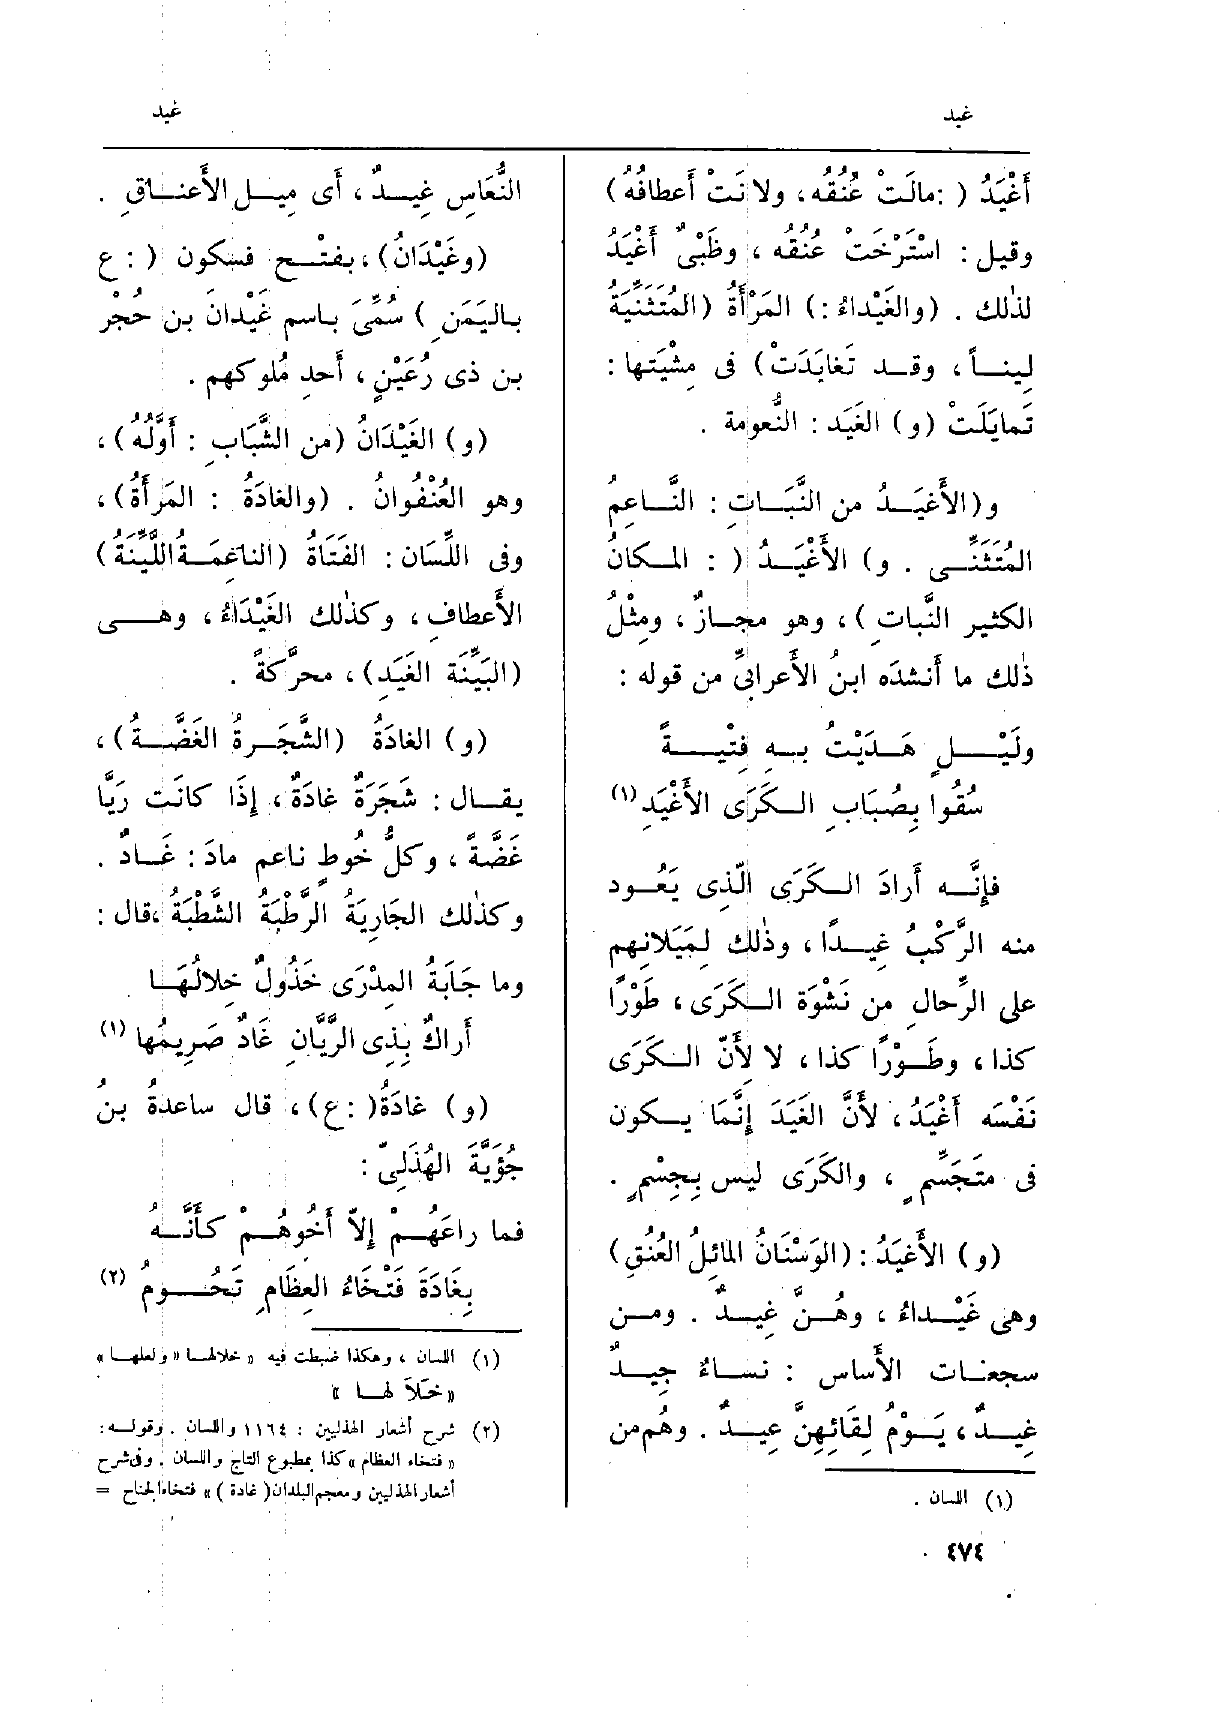 غيد
غيد
أَغْيَدُ ( :مالَتْ عُنُقُه، ولا نَتْ أَعطافُهُ)
وقيل : اسْتَرْخَت عُنُقُه ، وظَبْىٌ أَغْيَدُ
لذٰلك . (والغَيْداءُ :) المَرْأَةُ (المُتَثَنِّيَةُ
لِينــاً ، وقــد تَغايَدَتْ) فى مِشْيَتها :
تَمايَلَتْ (و) الغَيَد : النُّعومة .
و(الأَغيَــدُ من النَّبَــاتِ : النَّاعِمُ
المُتَثَنِّــى . و) الأَغْيَــدُ ( : المـكانُ
الكثير النَّبات )، وهو مجــازٌ ، ومِثْلُ
ذٰلك ما أَنشدَه ابنُ الأَعرابىِّ من قوله :
ولَيْــــلٍ هَــدَيْتُ بــه فِتْيــــةً
سُقُوا بِصُبَابِ الـكَرَى الأَغْيَدِ (١)
فإِنَّــه أَرادَ الـكَرَى الّذِى يَعُــود
منه الرَّكْبُ غِيــدًا ، وذٰلك لِمَيَلانِهم
على الرِّحالِ من نَشْوَة الـكَرَى ، طَوْرًا
كذا ، وطَــوْرًا كذا ، لا لأَنّ الـكَرَى
نَفْسَه أَغْيَدُ ، لأَنَّ الغَيَدَ إِنَّمَا يـكون
فى متَجَسِّم ٍ ، والكَرَى ليس بِجِسْم ٍ .
(و) الأَغيَدُ : (الوَسْنَانُ المائِلُ العُنُقِ)
وهى غَيْــداءُ ، وهُــنَّ غِيــدٌ . ومــن
سجعــات الأَساس : نســاءٌ جِيــدٌ
غِيــدٌ ، يَــوْمُ لِقَائهِنَّ عِيــدٌ . وهُم من
(١) اللسان .
النُّعَاسِ غِيــدٌ ، أَى مِيــل الأَعنــاقِ .
(وغَيْدَانُ) ، بفتــح فسكون ( : ع
بـاليَمَنِ ) سُمِّىَ بـاسم غَيْدانَ بن حُجْر
بن ذى رُعَيْنٍ ، أَحدِ مُلوكهم .
(و) الغَيْدَانُ (من الشَّبَابِ : أَوَّلُهُ) ،
وهو العُنْفُوانُ . (والغادَةُ : المَرأَةُ) ،
وفى اللِّسَان : الفَتَاةُ (الناعِمَــةُ اللَّيِّنَةُ)
الأَعطافِ ، وكذٰلك الغَيْدَاءُ ، وهــى
(البَيِّنَة الغَيَدِ) ، محرَّكةً .
(و) الغادَةُ (الشَّجَــرةُ الغَضَّــةُ) ،
يقــال : شَجَرَةٌ غادَةٌ ، إِذَا كانَت رَيَّا
غَضَّةً ، وكلُّ خُوطٍ ناعم مادَ : غَــادٌ .
وكذٰلك الجَارِيَةُ الرَّطْبَةُ الشَّطْبَةُ ،قال :
وما جَابَةُ المِدْرَى خَذُولٌ خِلالُهَــا
أَراكٌ بِذِى الرَّيَّانِ غَادٌ صَرِيمُها (١)
(و) غادَةُ( :ع) ، قال ساعدةُ بنُ
جُؤَيَّةَ الهُذَلىّ :
فما راعَهُــمْ إِلاّ أَخُوهُــمْ كأَنَّــهُ
بِغَادَةَ فَتْخَاءُ العِظَامِ تَحُــومُ (٢)
(١) اللسان ، وهكذا ضبطت فيه «خلالهـا» ولعلهـا «
«خَلاَ لهــا »
(٢) شرح أشعار الهذليين : ١١٦٤ واللسان . وقولــه :
« فتخاء العظام » كذا بمطبوع التاج واللسان . وفى شرح
أشعار الهذليين ومعجم البلدان( غادة ) » فتخاء الجناح =
٤٧٤